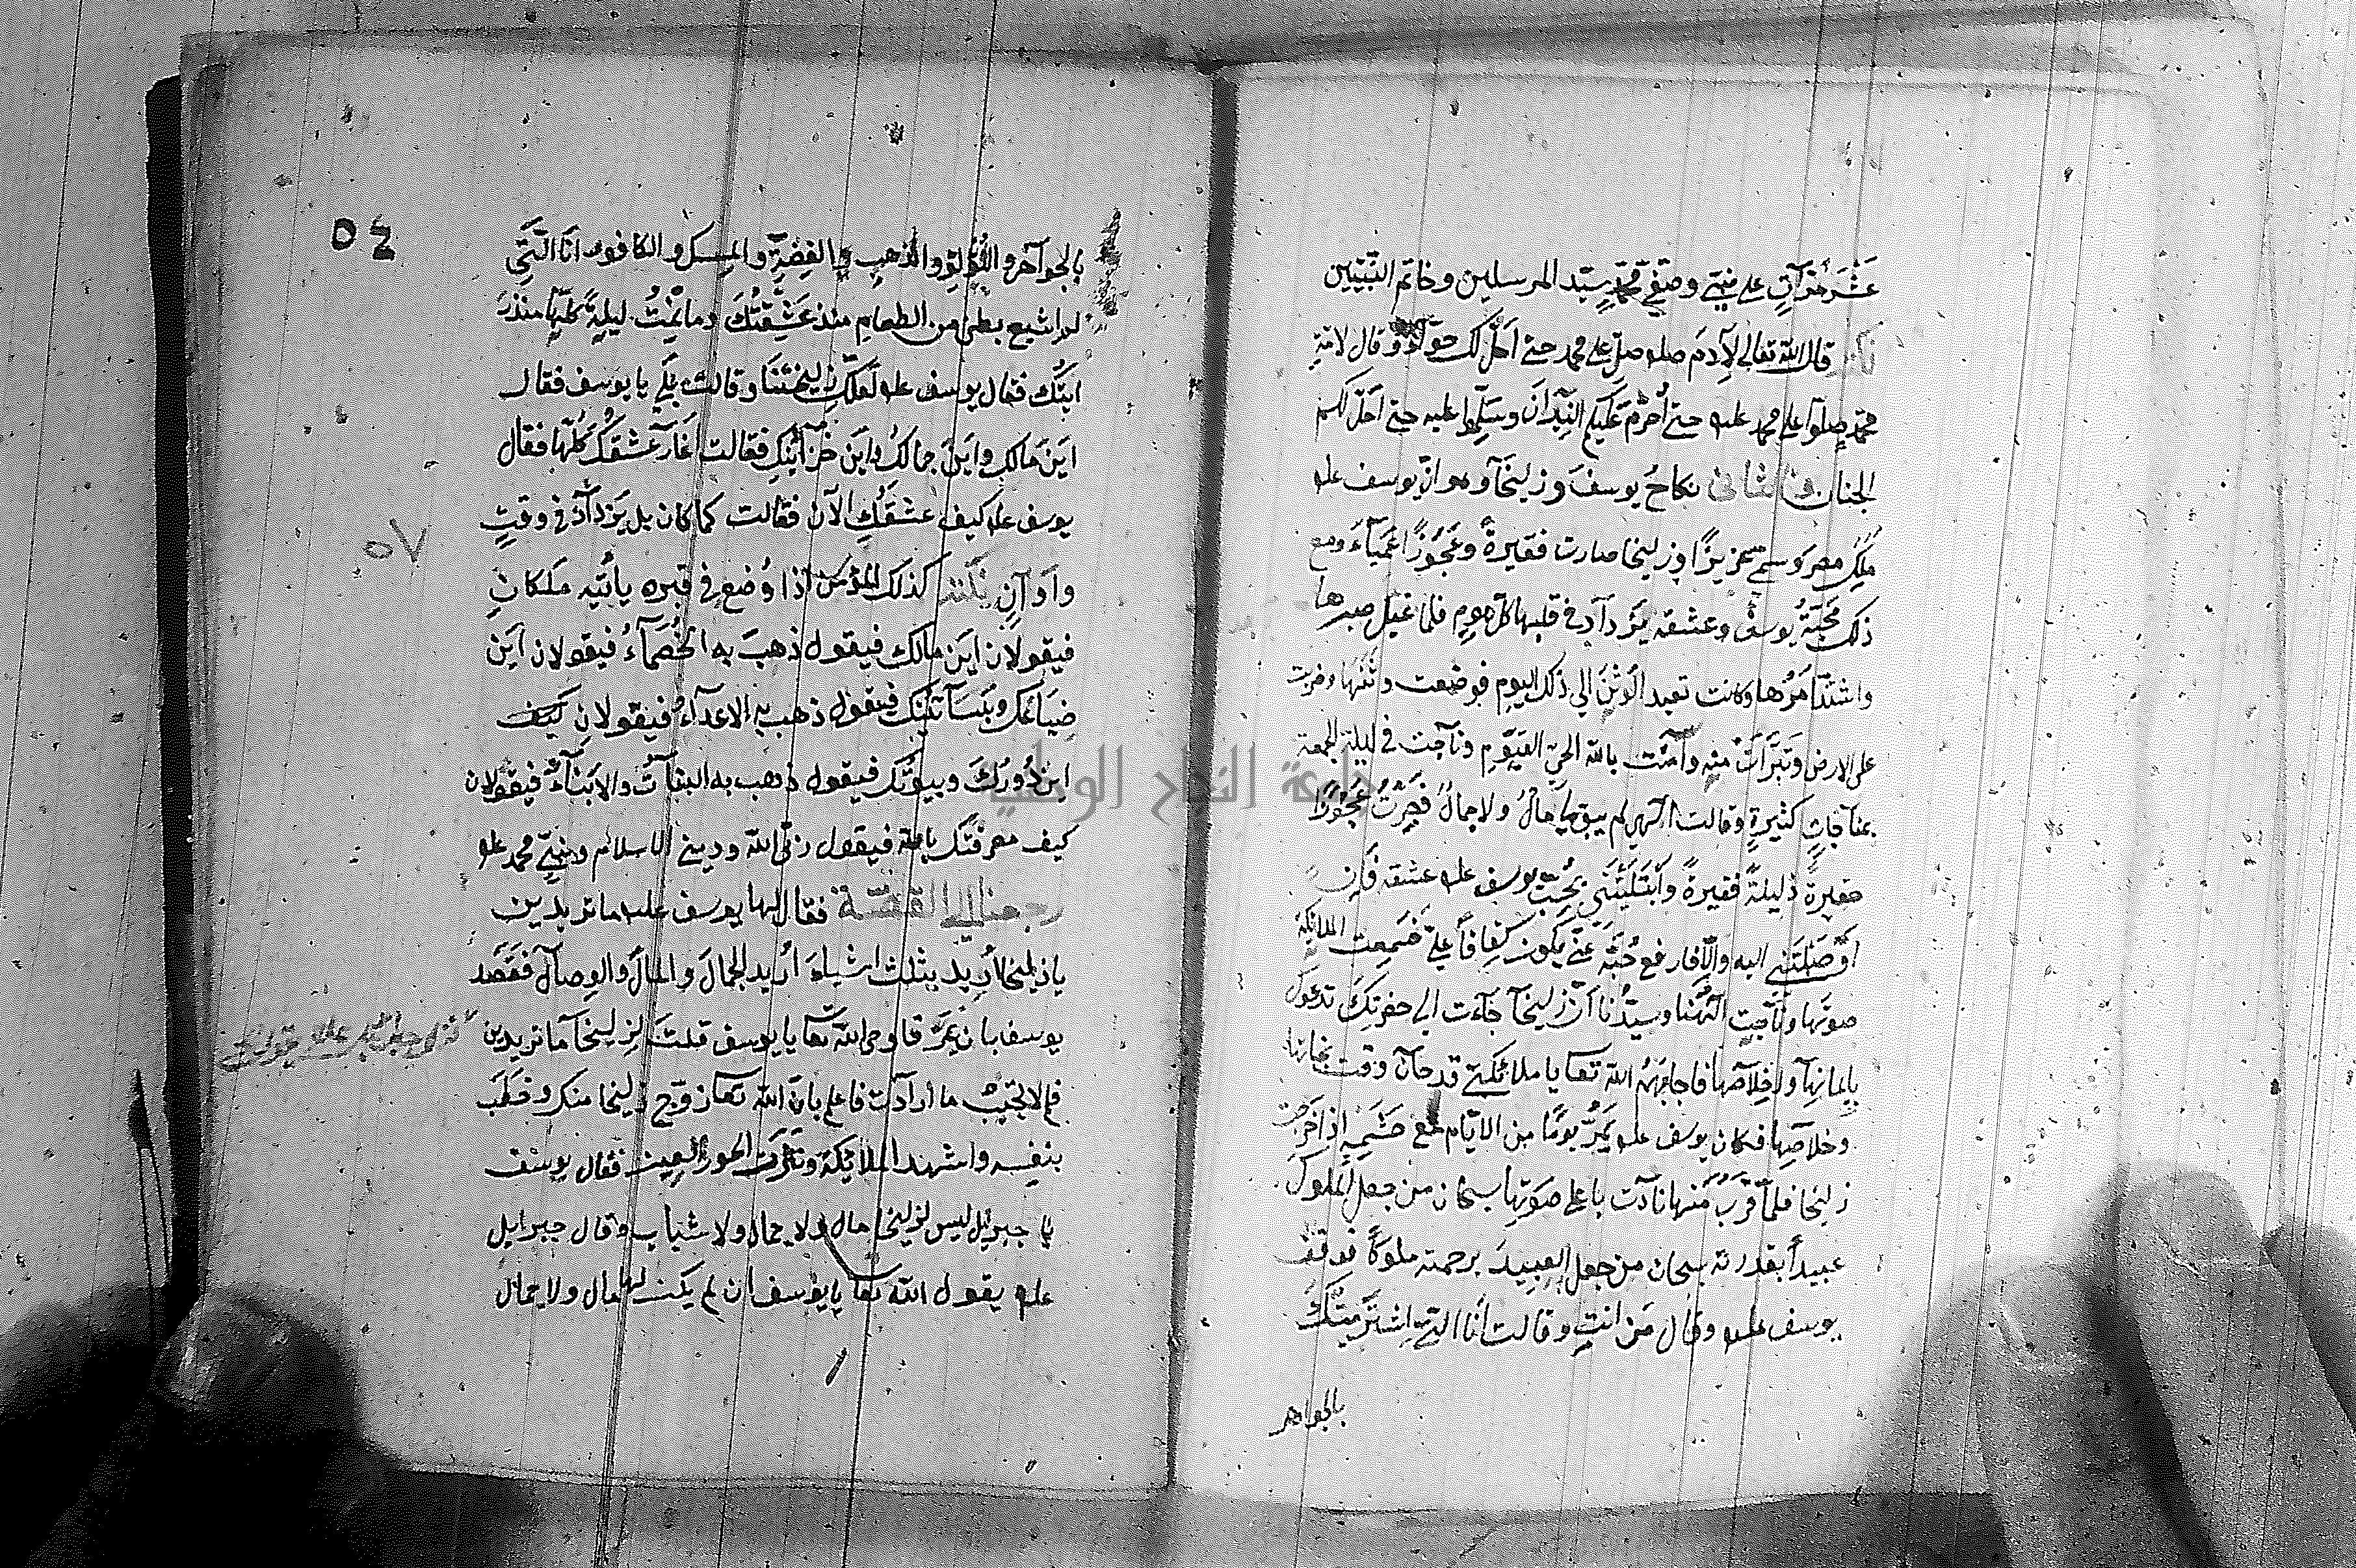 عَشَرَ مَرَّاتٍ على نبيّ وصفيّ محمّدٍ سيّد المرسلين وخاتم النّبيّين
نكتة قال الله تعالى لِآدمَ صلوا صلّ على محمد حتى اُحلّ لك حوّآء وقال لامّةِ
محمّدٍ صلّوا على محمد عليه حتى اُحرّم عَليكم النِّيْرانَ وسَلِّموا عليه حتى اُحلّ لكم
الجنان والثانى نكاحُ يوسفَ وزليخآ وهو انّ يوسف عليه
مَلِك مصر وسمّى عزيزًا وزليخا صارت فقيرةً وعَجُوزًا عَمْيَآءَ ومع
ذلك مَحَبّةُ يوسفَ وعشقه يَزْدَادُ في قلبها كلّ يومٍ فلما عيل صبرها
واشتدّ اَمْرُها وكانت تعبد الوَثَنَ الى ذلك اليوم فوضعت وثنها وضربت
على الارض وتَبَرَّأَتْ منه وآمنت بالله الحيّ القيّومِ وناجت في ليلة الجمعة
بمناجاتٍ كثيرةٍ وقالت الٓهى لم يبق لى مالٌ ولا جمالٌ فَصِرْتُ عَجُوزًا
حقيرةً ذليلةً فقيرةً وابْتَلَيْتَنى بحُبّ يوسف عليه عشقه فَاِن
اَوْصَلْتَنى اليه والّا فارفع حُبَّه عنّى يكون كفافاً علىّ فسمعت الملائكة
صوتَها وناجت الٓهَنا وسيّدَنا انّ زليخآ جآءت الى حضرتك تدعوك
بايمانها واخلاصها فاجابهم الله تعا يا ملائكتى قد حان وقت نجاتها
وخلاصِها فكان يوسف عليه يَمُرُّ يومًا من الايّام مع حَشَمِهِ اِذ اَخرجت
زليخا فلمّا قَرُبَ منها نادت باعلى صوتِها سبحان من جعل المُلوك
عبيداً بقدرته سبحان من جعل العبيدَ برحمته ملوكًا فوقف
يوسف عليه وقال مَن انتِ وقالت أنا التى اشتريتُكَ
بالجواهر
٥٤
بالجواهرِ واللُّؤلؤِ والذهبِ والفِضّةِ والمِسك والكافور انَا الّتى
لم اشبع بطنى من الطعام منذ عَشَقْتُكَ وما نِمْتُ ليلةً كلّها منذ رَ
ايتُك فقال يوسف عليه لعلكِ زليخآ وقالت بلى يا يوسف فقال
اين مَالكِ واين جمالكِ واين خزآئنكِ فقالت اَغَارَ عشقُك كُلَّها فقال
يوسف عليه كيف عشقُكِ الآن فقالت كما كان بل يَزْدَآدُ في وقتٍ
وَآوَانٍ نكتة كذلك المؤمن اذا وُضع في قبره يأتيه مَلَكانِ
فيقولان اين مالك فيقول ذهبَ به الخُصَمَآءُ فيقولان اين
ضِيَاعُك وبَسَاتينك فيقول ذهب به الاعدآءُ فيقولان كيف
٥٧
اين دُورَكَ وبيوتُك فيقول ذهب به البَناتُ والابْنَآءُ فيقولان
كيف معرفتك بالله فيقول ربّى الله ودينى الاسلام ونبيّى محمد عليه
رجعنا الى القصّة فقال لها يوسف عليه ما تريدين
يا زليخا اُريد بثلث اشياءَ اُريد الجمالَ والمالَ والوِصالَ فقصد
يوسف بان يَمُرّ فاوحى الله تعا يا يوسف قلتَ لِزليخآ ما تريدين
فلم لا تجيبُ ما اَرادت فاعلم بانّ الله تعا زوّج زليخا منك وخَطَبَ
بنفسِه واشهد الملائكة ونَثَرَتْ الحورُ العين فقال يوسف
يا جبريل ليس لزليخا مال ولا جمال ولا شباب وقال جبرائيل
عليه يقول الله تعا يا يوسف ان لم يكن لها مال ولا جمال
جامعة النجاح الوطنية